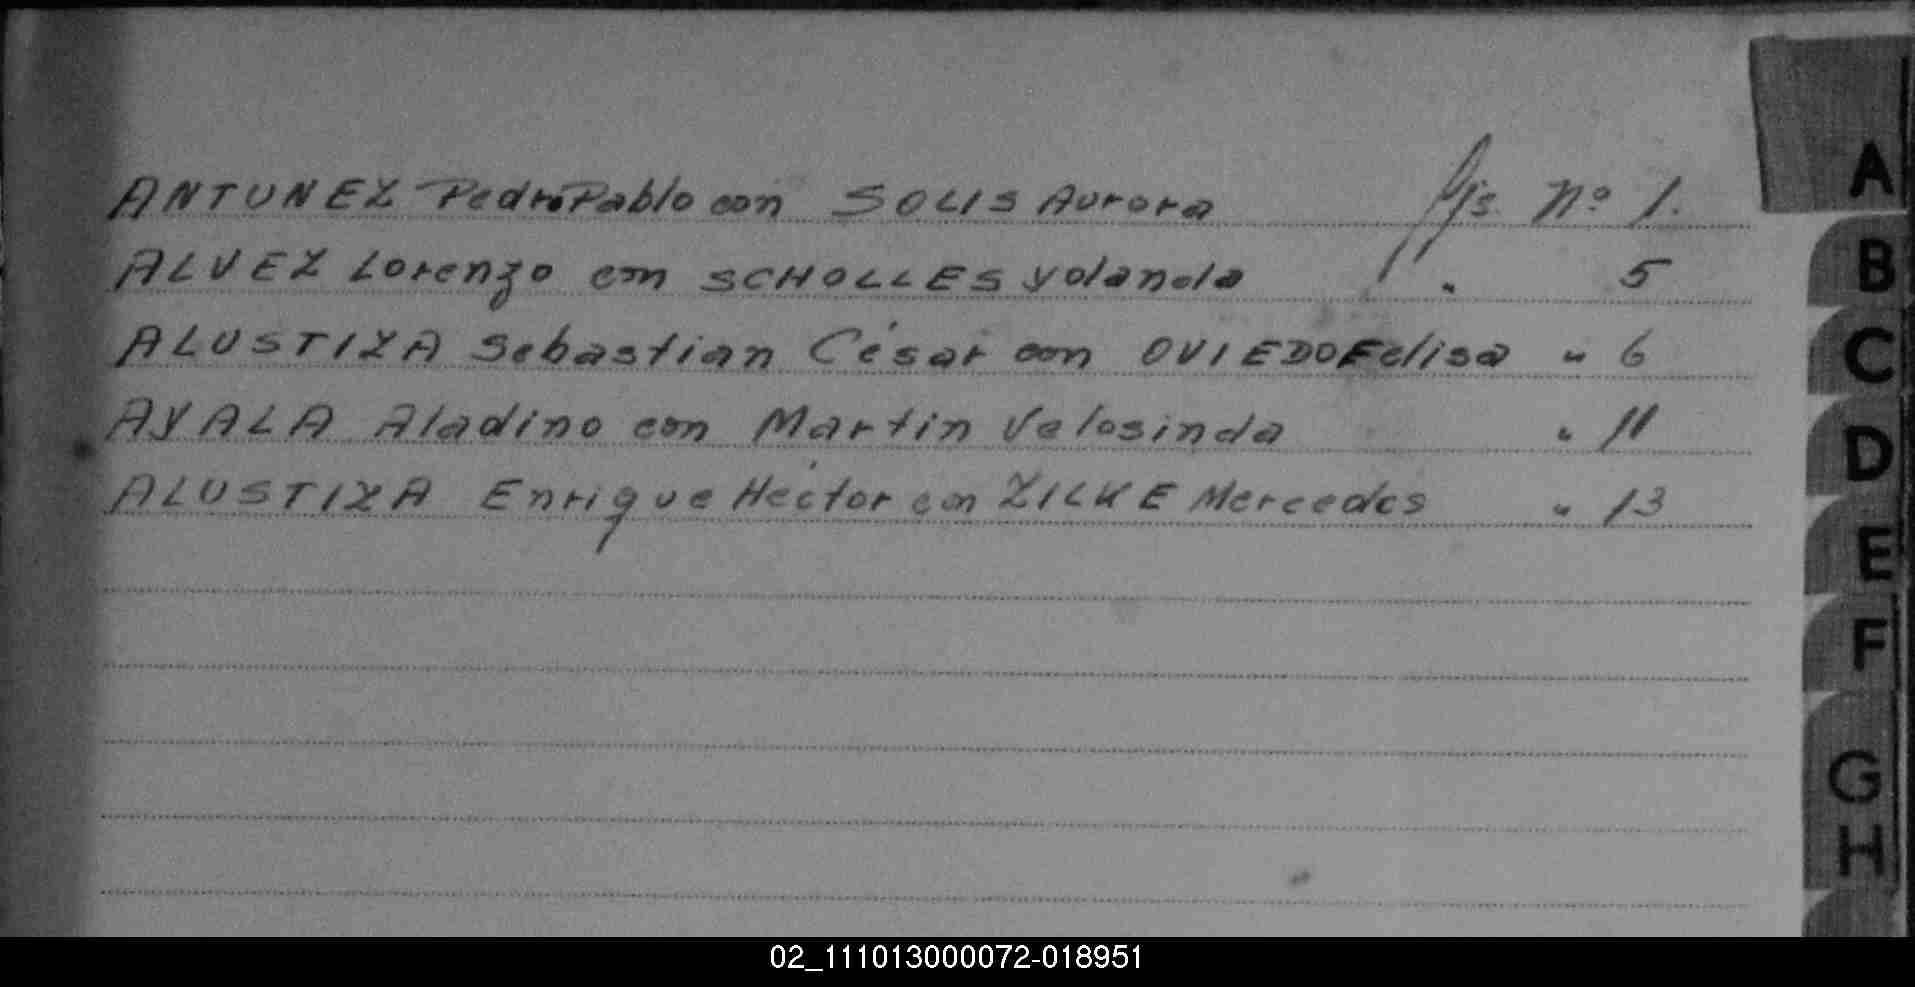 ANTUNEZ Pedro Pablo con SOLIS Aurora fjs. Nº 1.
ALVEZ Lorenzo con SCHOLLES Yolanda " . 5
ALUSTIZA Sebastian César con OVIEDO Felisa " 6
AYALA Aladino con Martin Velosinda " 11
ALUSTIZA Enrique Héctor con ZILKE Mercedes " 13
A
B
C
D
E
F
G
H
02_111013000072-018951